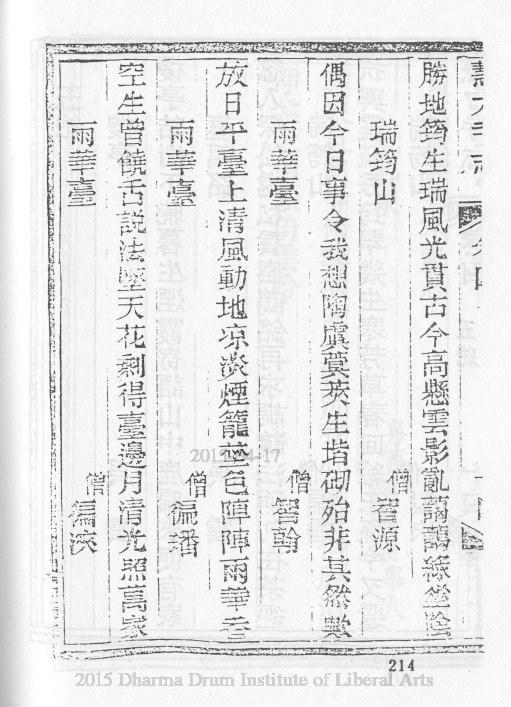 勝地筠生瑞風光貫古今高懸雲影亂藹綠陰
瑞筠山 僧源
偶因今日事令我想陶虞蓂莢生堦砌殆非其然歟
雨華臺 僧智翰
放日平臺上清風動地凉淡煙籠埜色陣陣雨華香
雨華臺 僧徧播
空生曾饒舌説法天花剩得臺邊月清光照萬家
雨華臺 僧徧浹
214
2015 Dharma Drum Institute of Liberal Arts